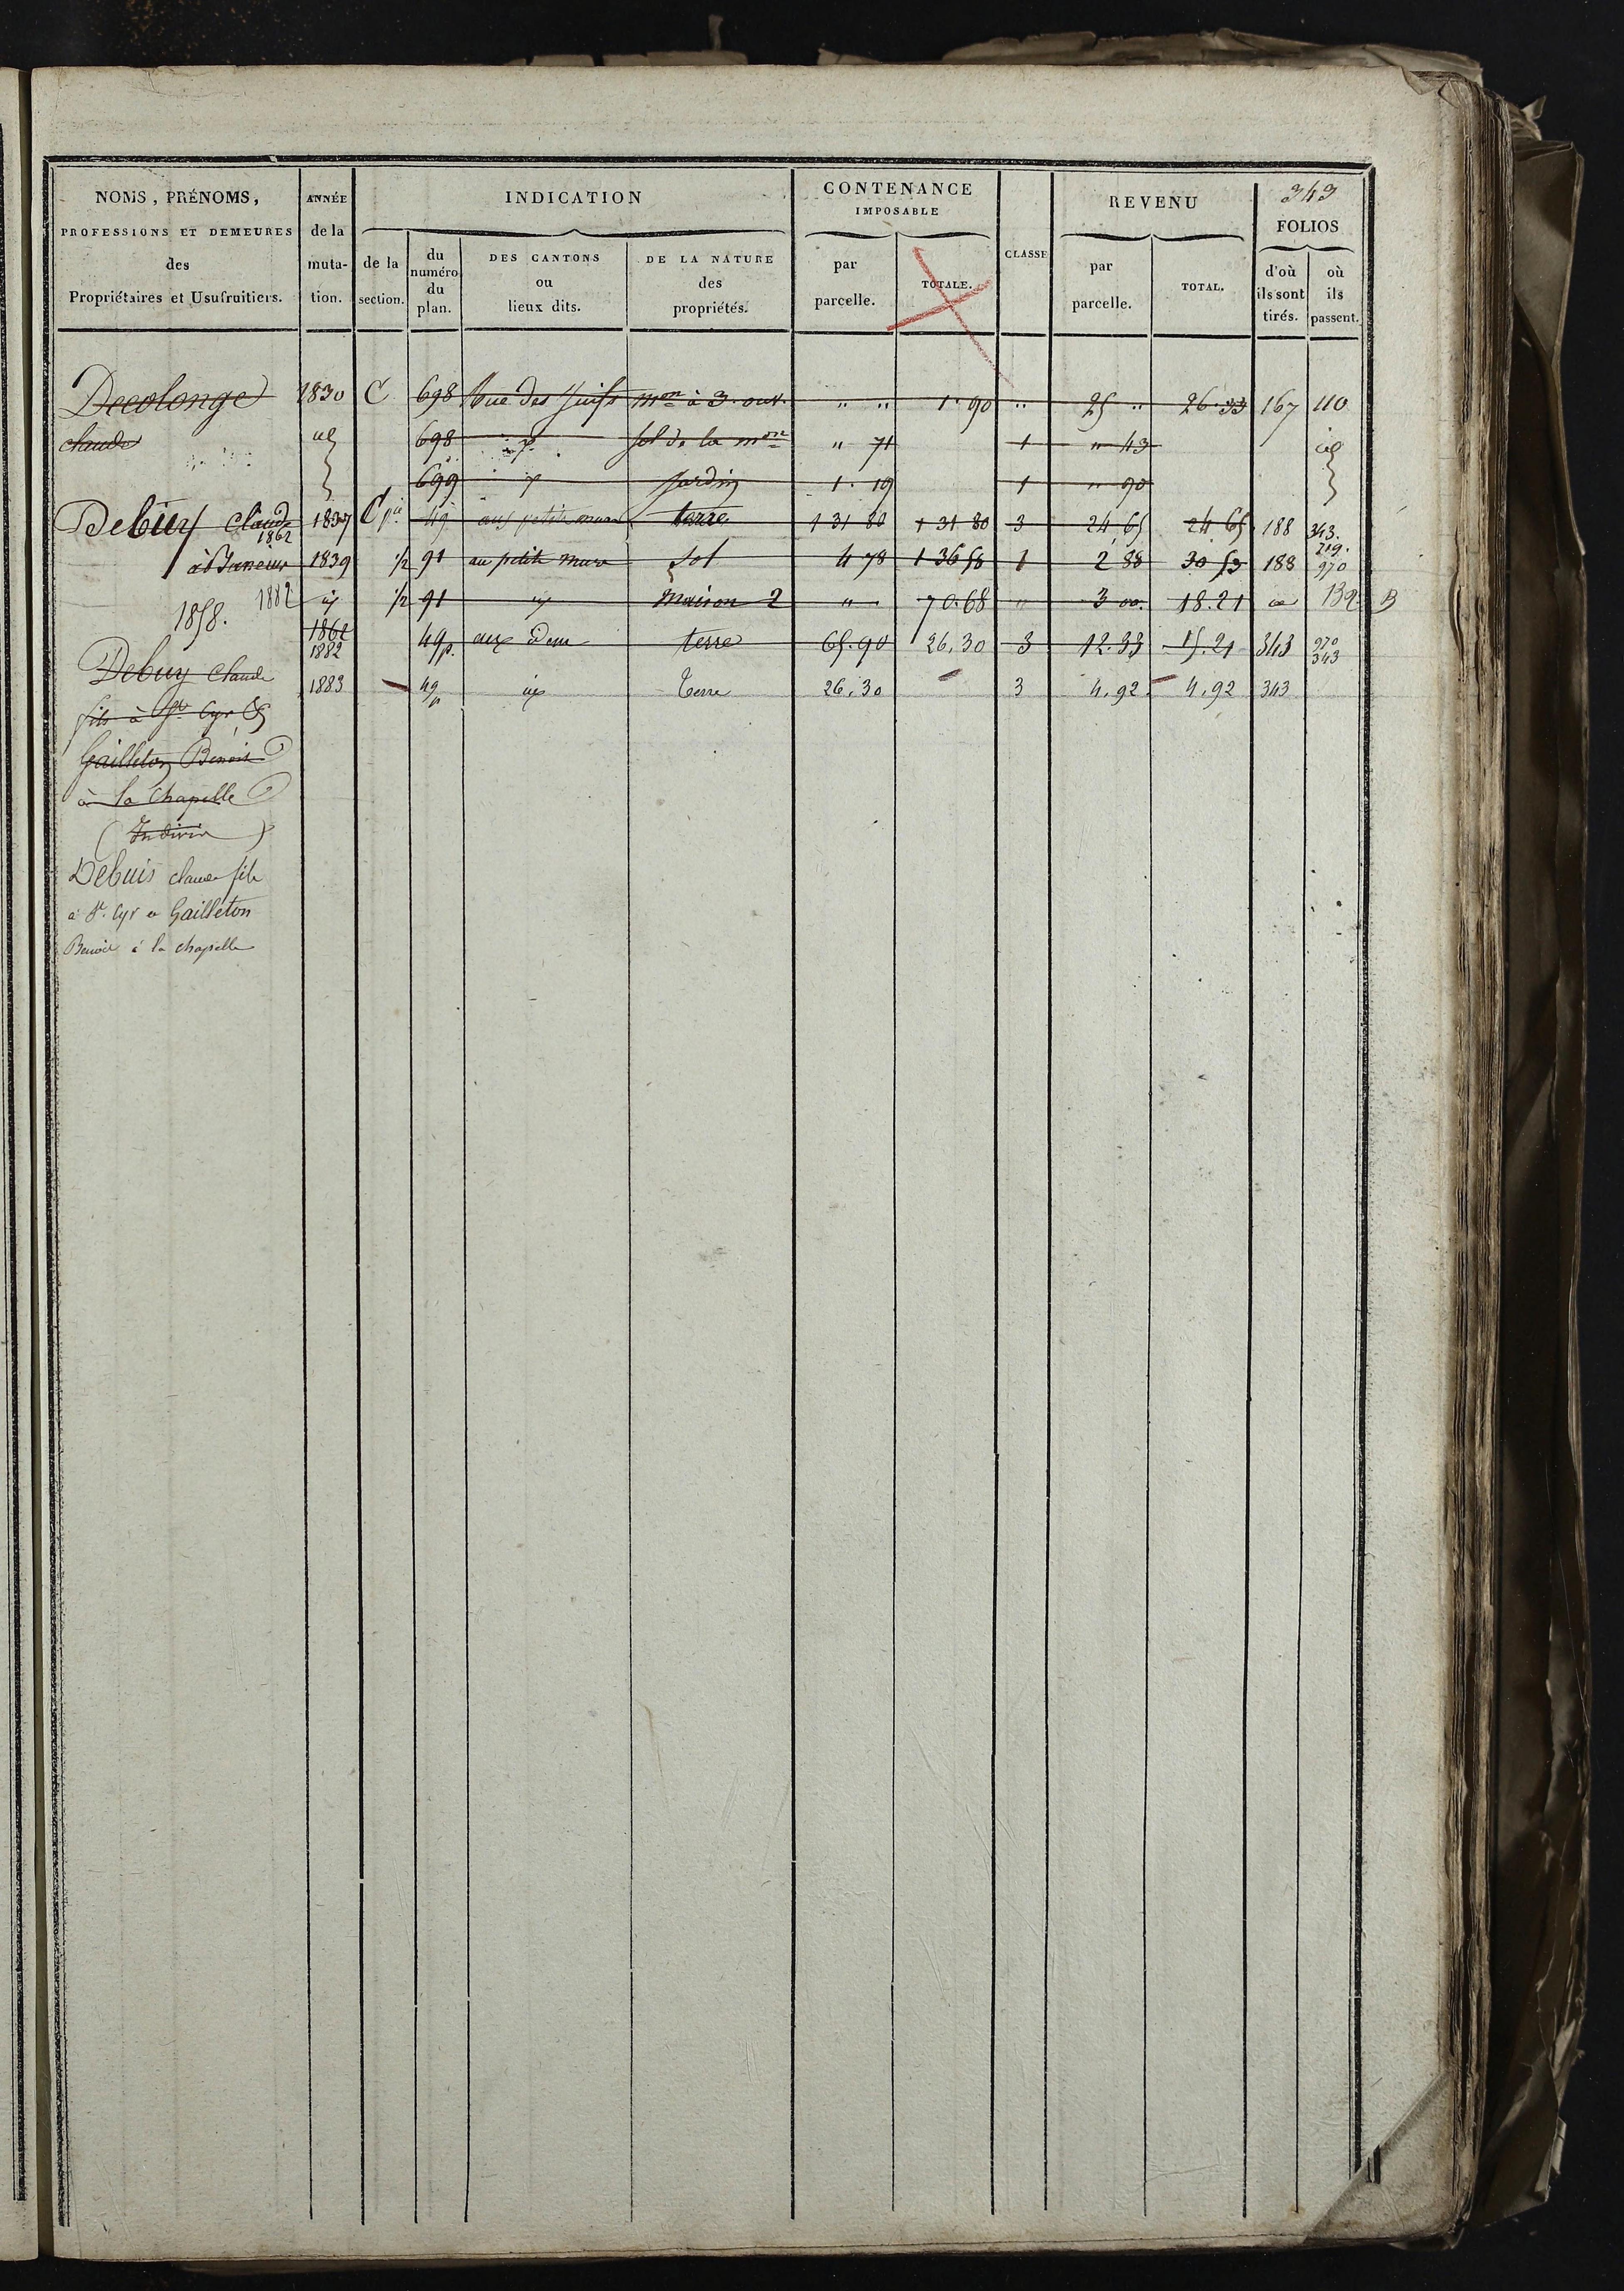 343
NOMS, PRÉNOMS, PROFESSIONS ET DEMEURES des Propriétaires et Usufruitiers.
ANNÉE de la muta- tion.
INDICATION
de la section.
du numéro du plan.
DES CANTONS ou lieux dits.
DE LA NATURE des propriétés.
CONTENANCE IMPOSABLE
par parcelle.
TOTALE.
CLASSE
REVENU
par parcelle.
TOTAL.
FOLIOS
d'où ils sont tirés.
où ils passent.
Decolonge 1830 C 698 Rue des Juifs mon à 3. ouv. " " 1. 90 " 25 " 26. 33 167 110
claude id 698 id sol de la mon " 71 1 " 43 id
699 id jardin 1. 19 1 " 90
Debuy Claude 1837 C pie 49 aux petits murs terre 1 31 80 1 31 80 3 24 65 24 65 188 343.
1862 219.
à 1839 1/2 91 au petit mur sol 4 78 1 36 58 1 2 88 30 53 188 970
1882 id 1/2 91 id maison 2 " 70.68 " 3 00. 18.21 id 139 B
1858.
1862 49p. aux idem terre 65.90 26.30 3 12.33 15.21 343 970
1882 343
Debuy Claude
1883 49p id terre 26.30 3 4.92 4.92 343
fils à St Cyr &
Gailleton Benoit
à la Chapelle
(Indivis)
Debuis claude fils
à St. Cyr et Gailleton
Benoit à la chapelle